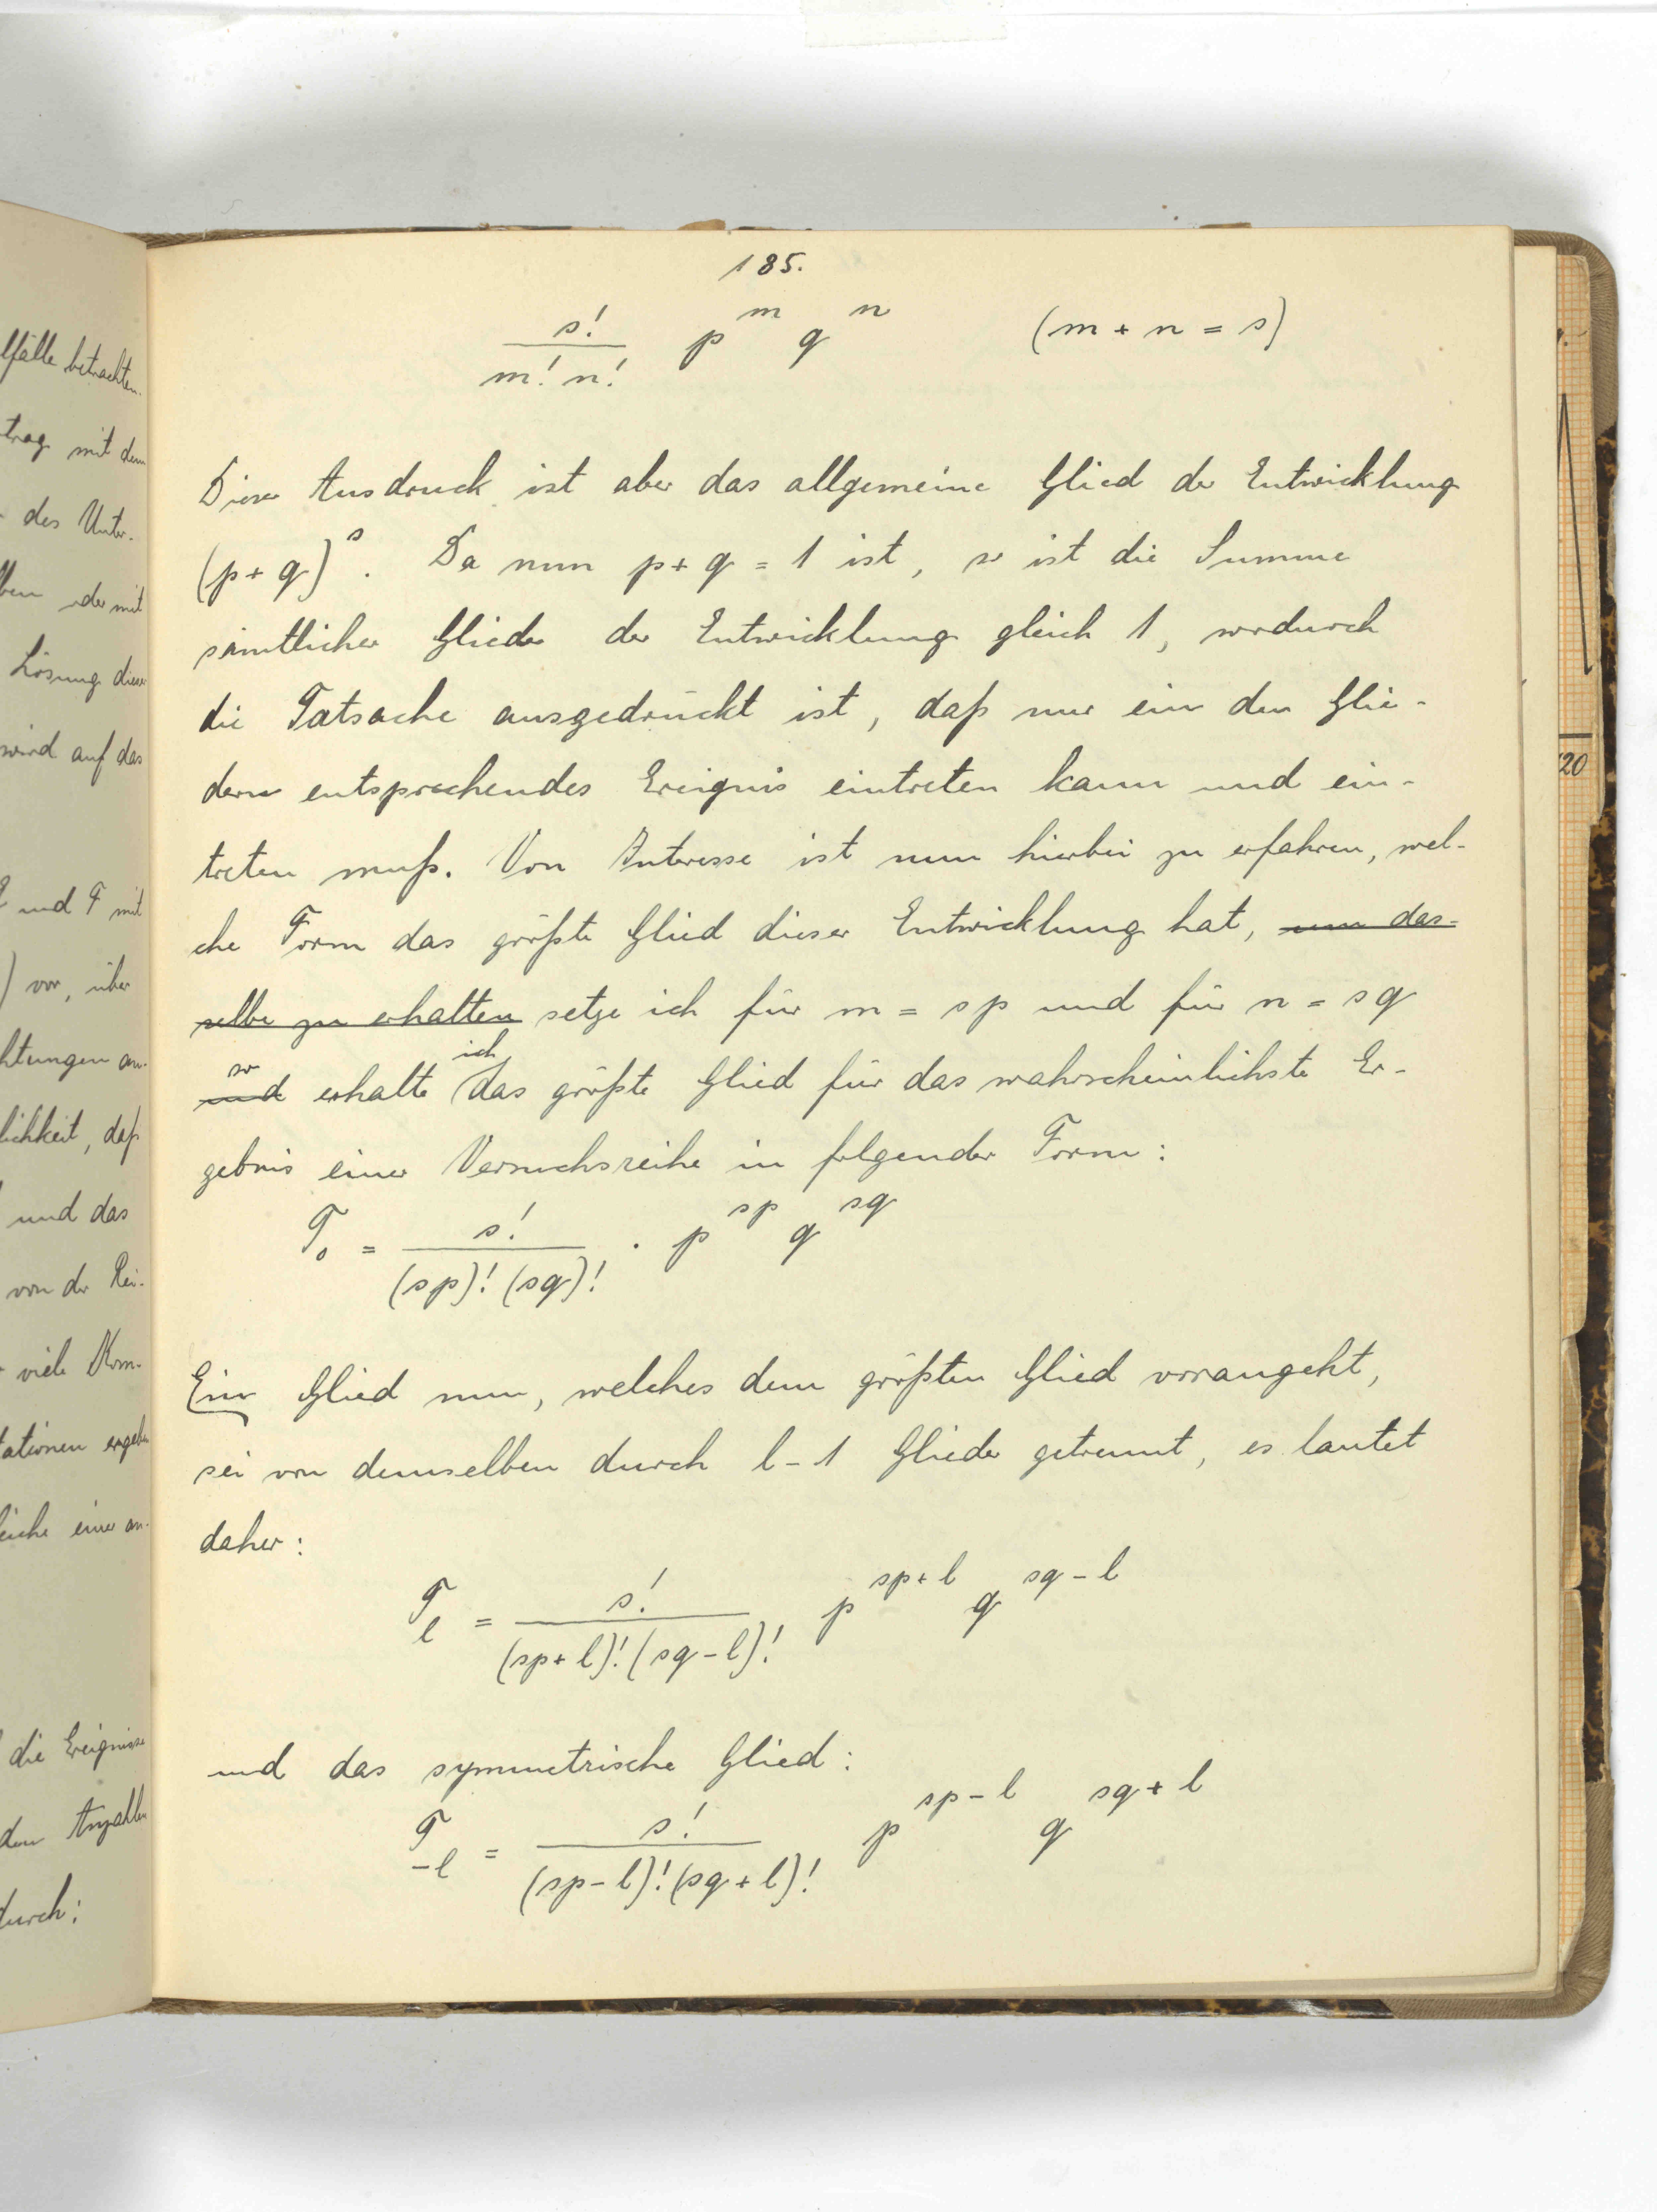 185.
s! / m! n! p^m q^n (m + n = s)
Dieser Ausdruck ist aber das allgemeine Glied der Entwicklung
(p+q)^s. Da nun p+q = 1 ist, so ist die Summe
sämtlicher Glieder der Entwicklung gleich 1, wodurch
die Tatsache ausgedrückt ist, daß nur ein den Glie-
dern entsprechendes Ereignis eintreten kann und ein-
treten muß. Von Interesse ist nun hierbei zu erfahren, wel-
che Form das größte Glied dieser Entwicklung hat, um das-
selbe zu erhalten setze ich für m = sp und für n = sq
so ich
und erhalte das größte Glied für das wahrscheinlichste Er-
gebnis einer Versuchsreihe in folgender Form:
T_0 = s! / (sp)! (sq)! · p^sp q^sq
Ein Glied nun, welches dem größten Glied vorangeht,
sei von demselben durch l-1 Glieder getrennt, es lautet
daher:
T_l = s! / (sp+l)! (sq-l)! p^sp+l q^sq-l
und das symmetrische Glied:
T_-l = s! / (sp-l)! (sq+l)! p^sp-l q^sq+l
lfälle betrachten.
trag mit dem
des Unter-
ben oder mit
Lösung dieser
wird auf das
und F mit
) vor, über
htungen an-
lichkeit, daß
und das
von der Rei-
viele Kom-
tationen ergeben
eiche einer an-
die Ereignisse
den Anzahlen
durch:
20